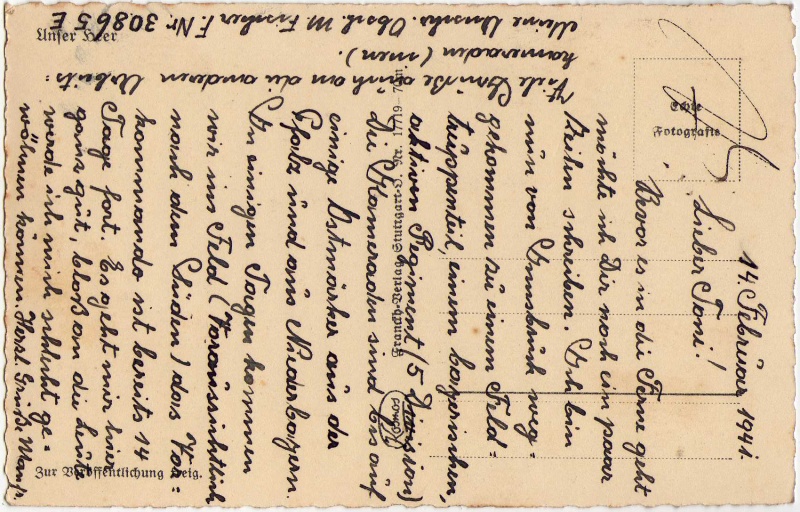 14. Februar 1941.
Lieber Toni!
Bevor es in die Ferne geht
möchte ich Dir noch ein paar
Zeilen schreiben. Ich bin
nun von Innsbruck weg-
gekommen zu einem Feld-
truppenteil, einem bayerischen,
aktiven Regiment (5 Division)
Die Kameraden sind bis auf
einige Ostmärker aus der
Pfalz und aus Niederbayern.
In einigen Tagen kommen
wir ins Feld (Voraussichtlich
nach dem Süden) das Vor-
kommando ist bereits 14
Tage fort. Es geht mir hier
ganz gut, bloß an die Leute
werde ich mich schlecht ge-
wöhnen können. Sonst Grüße
Viele Grüße auch an die anderen Arbeits-
kameraden (innen).
Meine Anschr. Obsch. M Fischer F. Nr. 30865 E
Unser Heer
Echte
Fotografie
Zur Veröffentlichung freig.